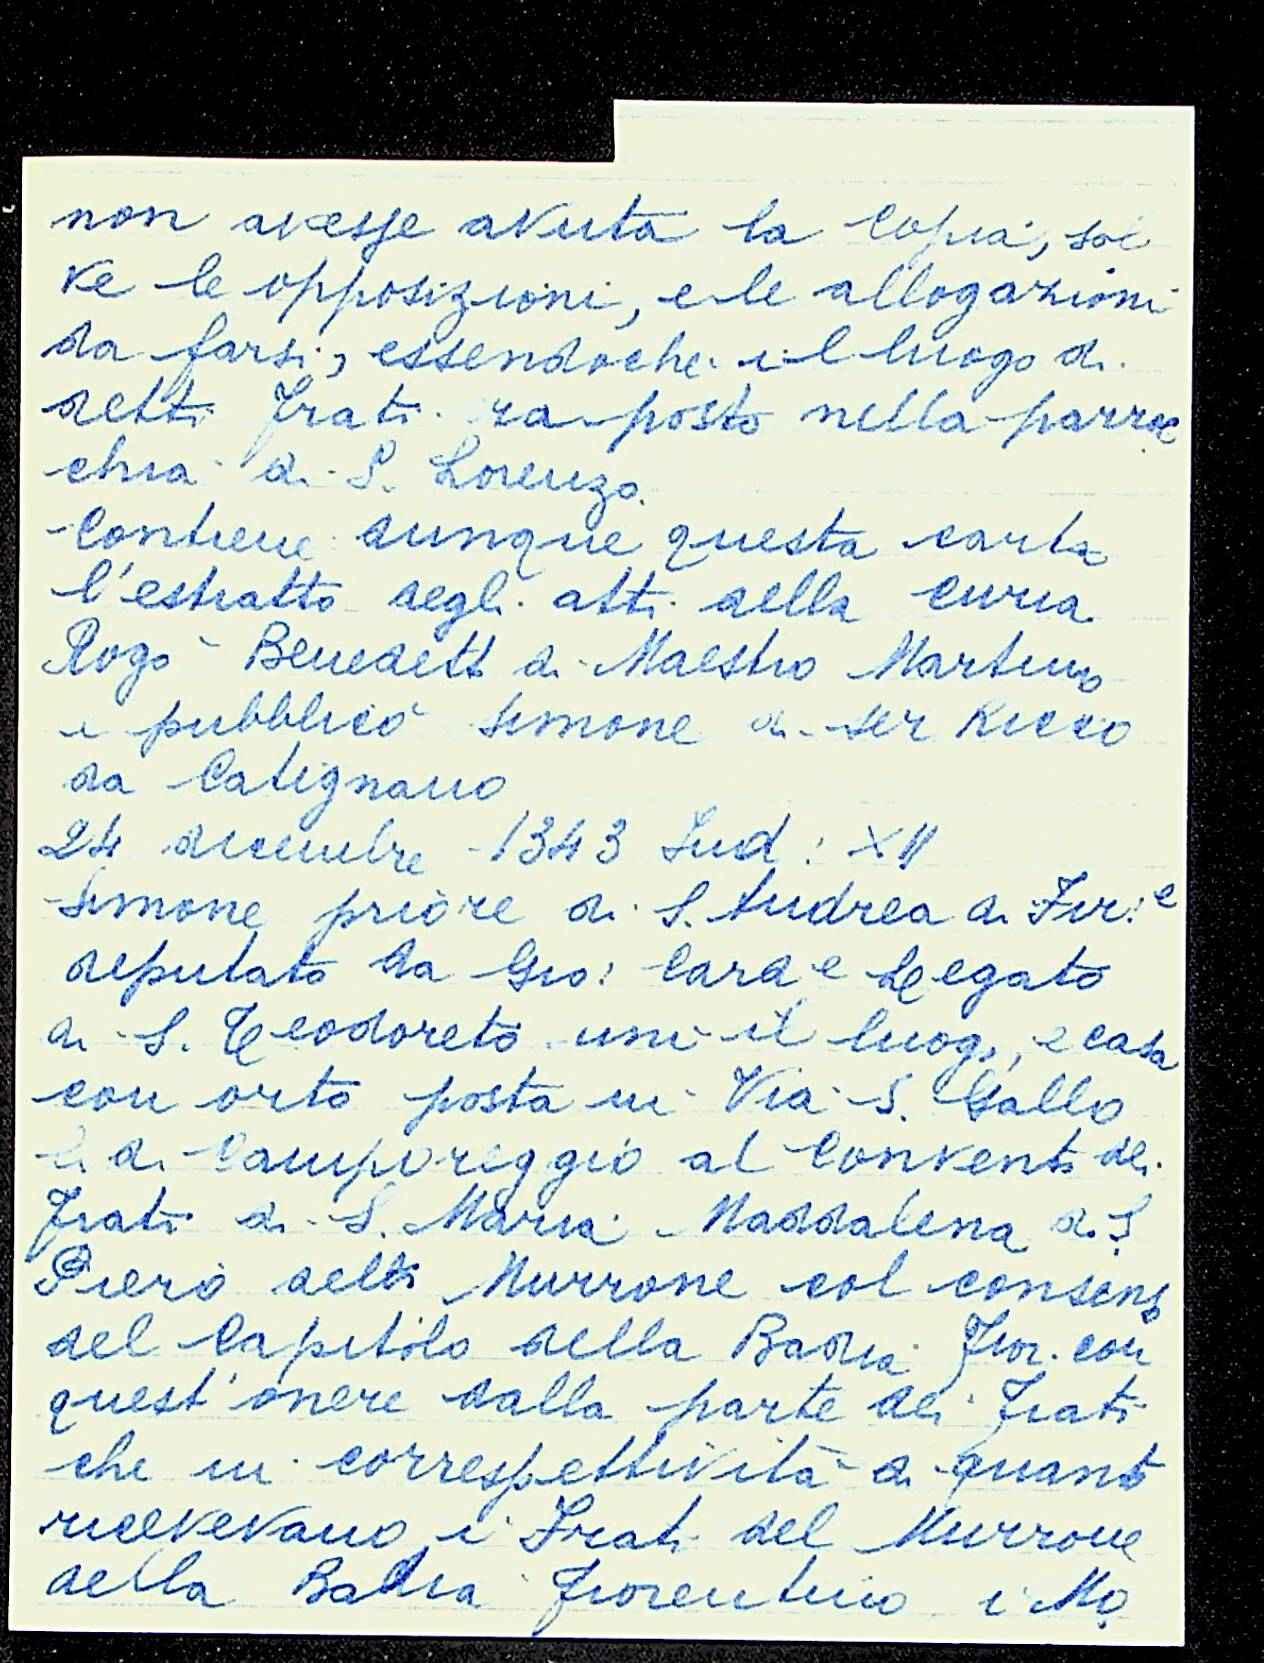 non avesse avuta la Copia, sol
ve le opposizioni, e le allogazioni
da farsi, essendoche il luogo di
detti Frati era posto nella parroc
chia di S. Lorenzo.
Contiene dunque questa carta
l'estratto degli atti della curia
Rogò Benedett di Maestro Martino
e pubblicò Simone di ser Ricco
da Catignano
24 dicembre 1343 Ind: XII
Simone priore di S. Andrea di Fir:e
deputato da Gio: Card e Legato
di S. Teodoreto unì il luogo, e casa
con orto posta in Via S. Gallo
di Camporeggio al Convento dei
Frati di S. Maria Maddalena di S.
Piero detti Murrone col consenso
del Capitolo della Badia Fior. con
quest'onere dalla parte dei Frati
che in correspettività di quanto
ricevevano i Frati del Murrone
della Badia Fiorentino i Mo